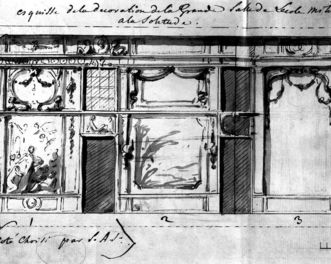 esquisse de la decoration de la Grande Salle de Lecole
a la Solitude.
1
2
3
coté Choisi par S. A.